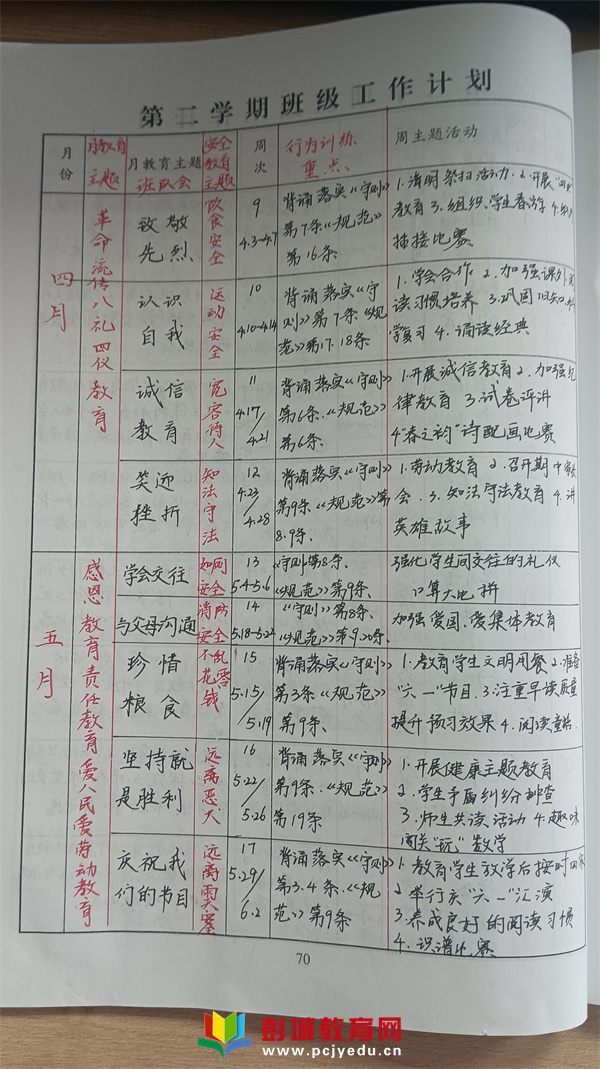 第二学期班级工作计划
月份
月教育主题
月教育主题 班队会
安全教育主题
周次
行为训练重点
周主题活动
四月
革命流传八礼四仪教育
致敬先烈
饮食安全
9
4.3-4.7
背诵落实《守则》
第7条《规范》
第16条
1.清明祭扫活动 2.开展
教育 3.组织学生春游 4.
插接比赛
认识自我
运动安全
10
4.10-4.14
背诵落实《守
则》第7条《规
范》第17.18条
1.学会合作 2.加强课外阅
读习惯培养 3.巩固旧知
学复习 4.诵读经典
诚信教育
宽容待人
11
4.17/
4.21
背诵落实《守则》
第6条.《规范》
第6条
1.开展诚信教育 2.加强纪
律教育 3.试卷评讲
4."春之韵"诗配画比赛
笑迎挫折
知法守法
12
4.23/
4.28
背诵落实《守则》
第9条《规范》第
8.9条.
1.劳动教育 2.召开期中家长
会.3.知法守法教育 4.讲
英雄故事
五月
感恩教育责任教育爱人民爱劳动教育
学会交往
安全
13
5.4-5.6
《守则》第8条.
《规范》第9条.
强化学生间交往的礼仪
口算大比拼
与父母沟通
消防安全
14
《守则》第8条.
《规范》第9.20条.
加强爱国.爱集体教育
珍惜粮食
不乱花零钱
15
5.15/
5.19
背诵落实《守则》
第3条《规范》
第9条.
1.教育学生文明用餐 2.准备
"六一"节目.3.注重早读质量
提升预习效果 4.阅读
坚持就是胜利
远离恶犬
16
5.22/
5.26
背诵落实《守则》
第9条.《规范》
第19条
1.开展健康主题教育
2.学生矛盾纠纷排查
3.师生共读活动 4.趣味
闯关"玩"数学
庆祝我们的节目
远离
17
5.29/
6.2
背诵落实《守则》
第3.4条.《规
范》第9条
1.教育学生放学后按时回
2.举行庆"六一"汇演
3.养成良好的阅读习惯
4.识谱比赛
70
彭城教育网
www.pcjyedu.cn